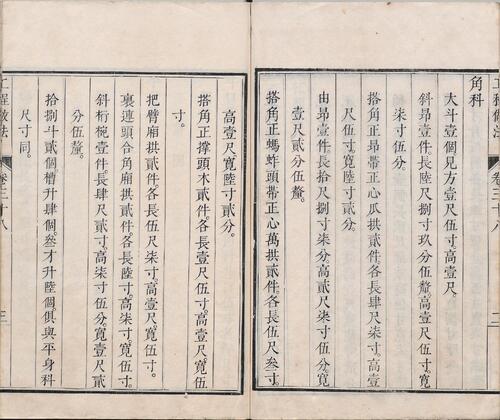 角科
大斗壹個見方壹尺伍寸高壹尺
斜昂壹件長陸尺捌寸玖分伍釐高壹尺寬
柒寸伍分
搭角正昂帶正心瓜拱貳件各長肆尺柒寸高壹
尺伍寸寬陸寸貳分
由昂壹件長拾尺捌寸柒分高貳尺柒寸伍分寬
壹尺貳寸分伍釐
搭角正螞蚱頭帶正心萬拱貳件各長伍尺叁寸
高壹尺寬陸寸貳分
搭角正撐頭木貳件各長壹尺伍寸高壹尺寬伍
寸
把臂廂拱貳件各長伍尺柒寸高壹尺寬伍寸
裏連頭合角廂拱貳件各長陸寸高柒寸寬伍寸
斜桁椀壹件長肆尺貳寸高柒寸伍分寬壹尺貳
分伍釐
拾捌斗貳個槽升肆個叁才升陸個俱與平身科
尺寸同
工程做法 卷三十八 三